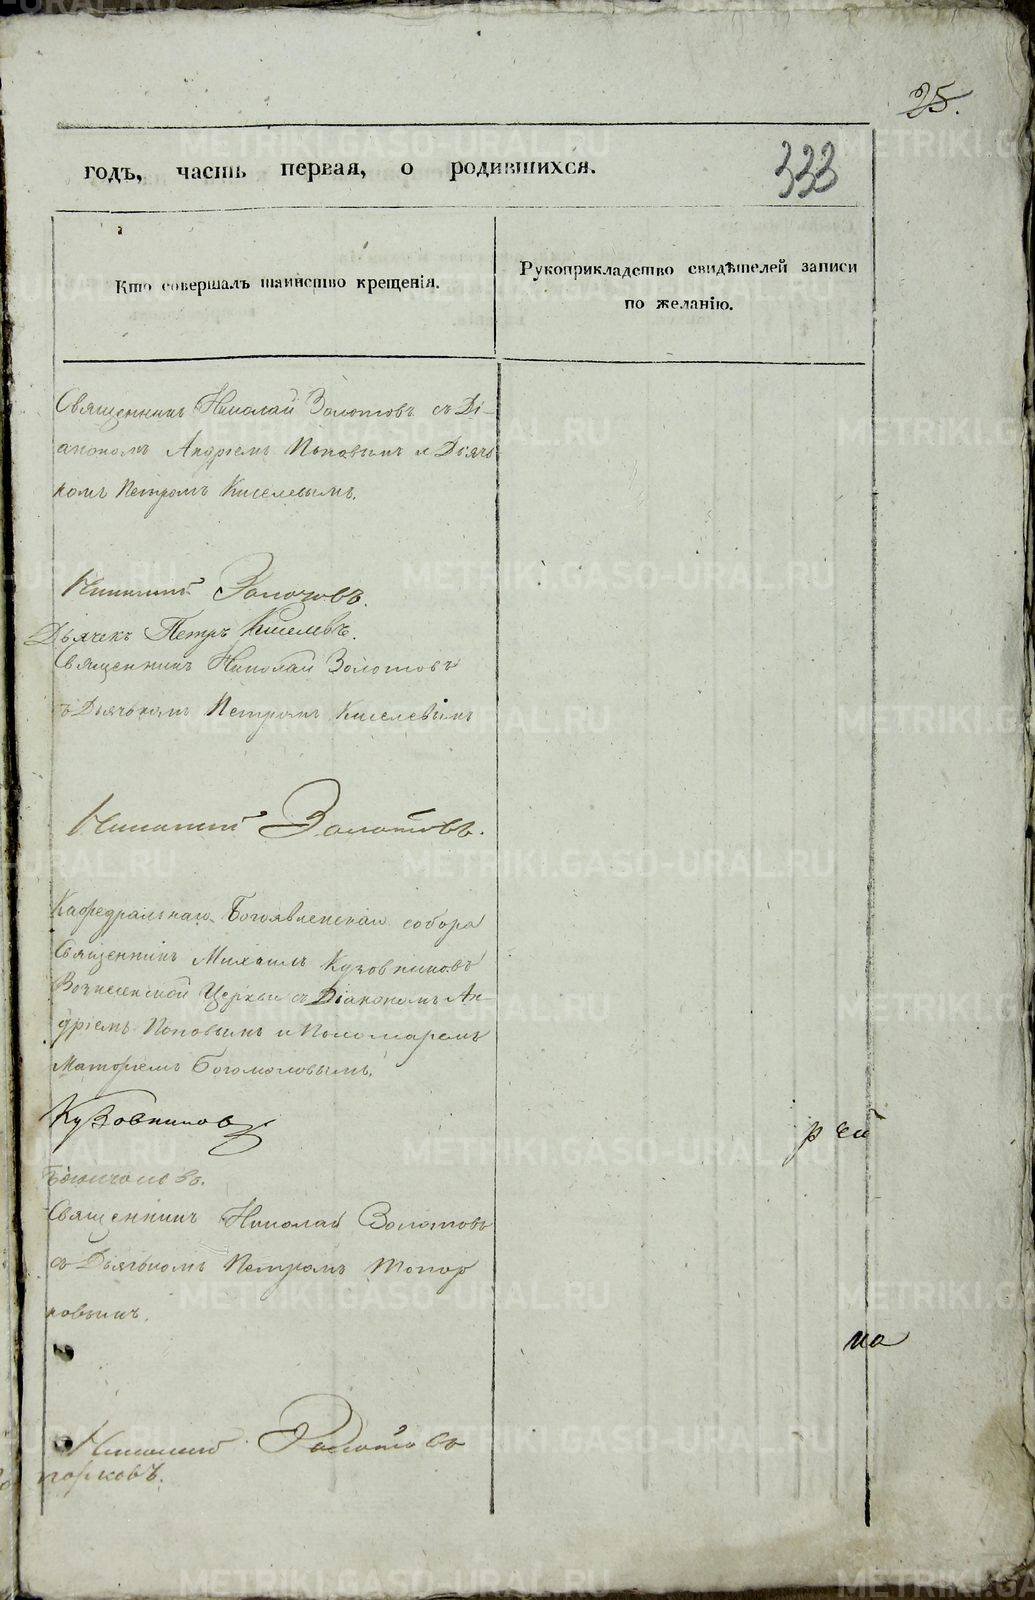 25.
годъ, часть первая, о родившихся.
333
Кто совершалъ таинство крещенія.
Рукоприкладство свидѣтелей записи
по желанію.
Священникъ Николай Золотовъ съ Ді-
акономъ Андріемъ Поповымъ и Дьячь
комъ Петромъ Киселевымъ.
Николай Золотовъ.
Дьячекъ Петръ Киселевъ.
Священникъ Николай Золотовъ
съ Дьячькомъ Петромъ Киселевымъ
Николай Золотовъ.
Кафедральнаго Богоявленскаго собора
Священникъ Михаилъ Кузовниковъ
Вознесенской Церкви съ Діакономъ Ан-
дріемъ Поповымъ и Пономаремъ
Матфіемъ Богомоловымъ.
Кузовниковъ
р чей
Священникъ Николай Золотовъ
съ Дьячькомъ Петромъ Топор
ковымъ.
на
Николай Золотовъ
порковъ.
METRIKI.GASO-URAL.RU